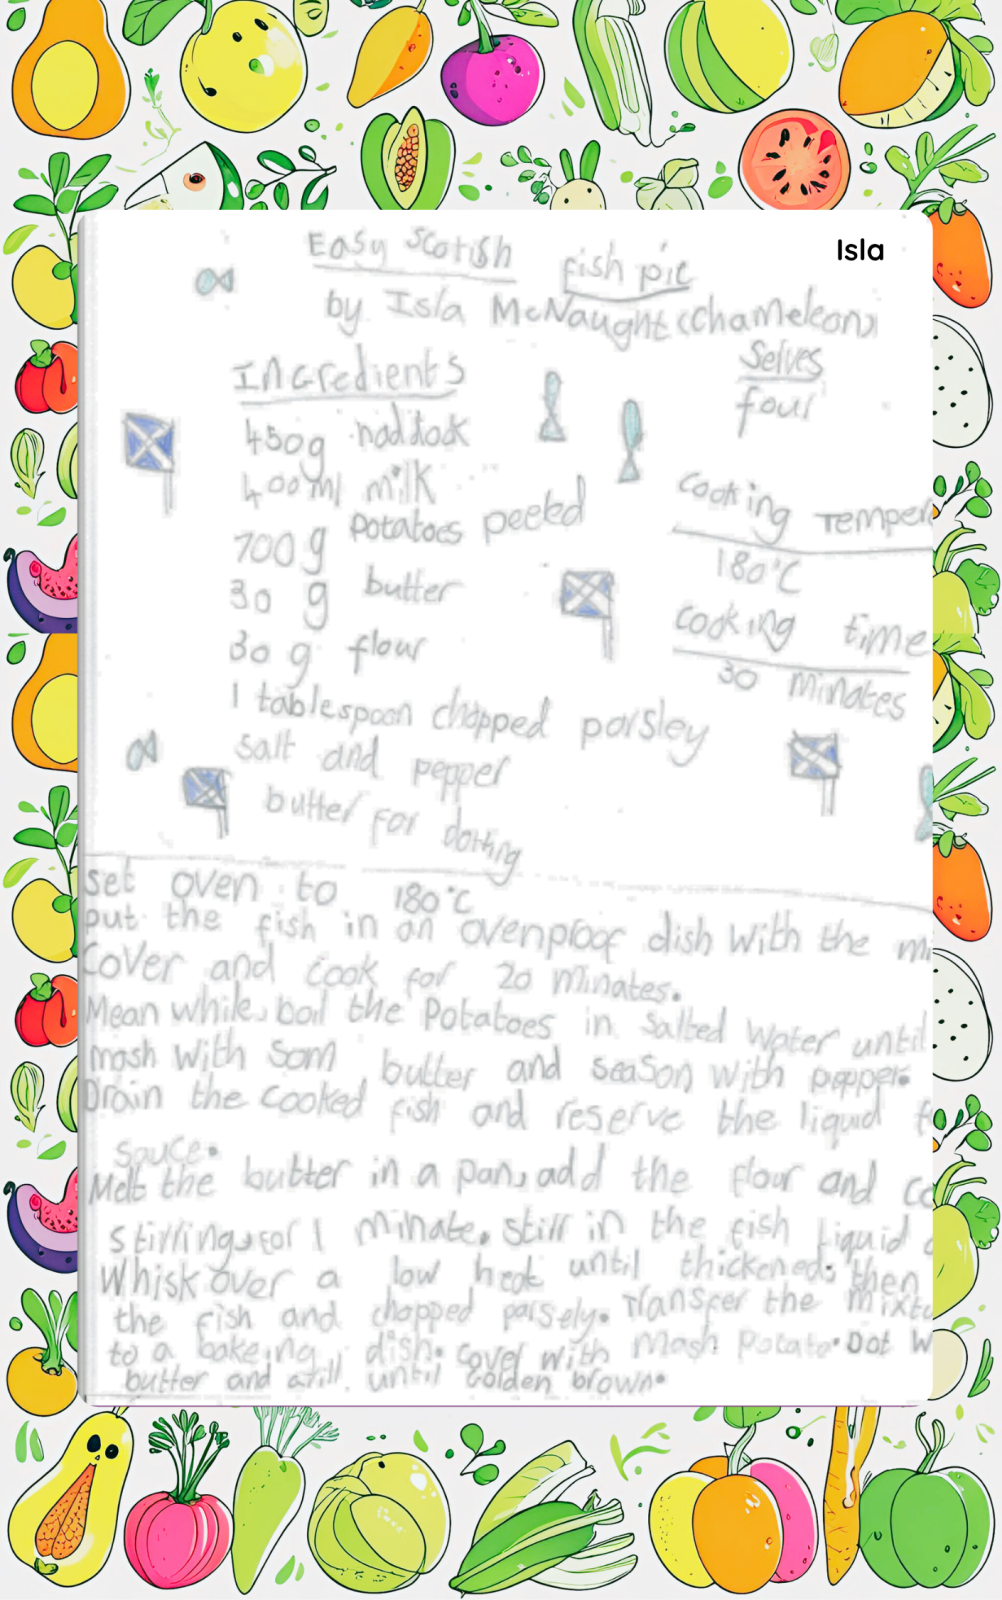 Isla
Easy Scotish fish pie
by Isla McNaught (chameleon)
Ingredients
Serves
four
450g haddock
400ml milk
700g potatoes peeled
30 g butter
30 g flour
1 tablespoon chopped parsley
salt and pepper
butter for dotting
cooking Temper
180°C
cooking time
30 minates
set oven to 180°C
put the fish in an ovenproof dish with the mi
Cover and cook for 20 minates.
Mean while, boil the Potatoes in salted water until
mash with som butter and season with pepper.
Drain the cooked fish and reserve the liquid f
sauce.
Melt the butter in a pan, add the flour and co
stirring, for 1 minate. stir in the fish liquid
Whisk over a low heat until thickened, then
the fish and chopped parsely. Transfer the mixtu
to a bakeing dish. cover with mash Potato. Dot w
butter and until golden brown.